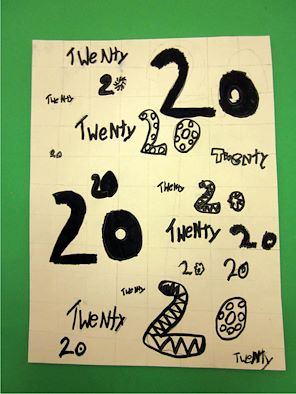 TWENTY
20
20
TWENTY
TWENTY
20
20
TWENTY
20
TWENTY
20
20
TWENTY
20
20
20
TWENTY
20
TWENTY
20
TWENTY